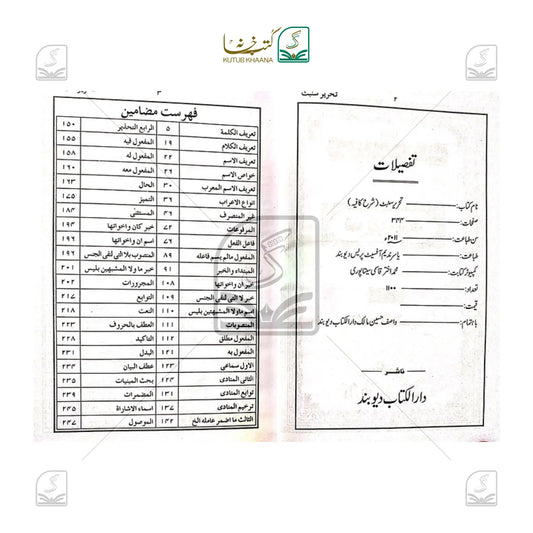 کتب خانہ
KUTUB KHAANA
تحریر سنبٹ ۲
تفصیلات
نام کتاب: تحریر سنبٹ (شرح کافیہ)
صفحات: ۳۴۴
سن طباعت: ۲۰۱۱ء
طباعت: یاسر ندیم آفسیٹ پریس دیوبند
کمپیوٹر کتابت: محمد اختر قاسمی سیتاپوری
تعداد: ۱۱۰۰
قیمت:
باہتمام: واصف حسین مالک دارالکتاب دیوبند
ناشر
دارالکتاب دیوبند
۳
فهرست مضامین
تعریف الکلمة ۵ الرابع التحذیر ۱۵۰
تعریف الکلام ۱۹ المفعول فیه ۱۵۵
تعریف الاسم ۲۲ المفعول له ۱۵۸
خواص الاسم ۲۶ المفعول معه ۱۶۰
تعریف الاسم المعرب ۳۰ الحال ۱۶۳
انواع الاعراب ۳۶ التمیز ۱۷۵
غیر المنصرف ۴۶ المستثنی ۱۸۴
المرفوعات ۷۲ خبر کان واخواتها ۱۹۲
فاعل الفعل ۷۶ اسم ان واخواتها ۱۹۶
المفعول مالم یسم فاعله ۸۹ المنصوب بلا التی لنفی الجنس ۱۹۶
المبتداء والخبر ۹۱ خبر ما ولا المشبهتین بلیس ۲۰۱
خبر ان واخواتها ۱۰۸ المجرورات ۲۰۲
خبر لا التی لنفی الجنس ۱۰۹ التوابع ۲۱۷
اسم ماولا المشبهتین بلیس ۱۱۰ النعت ۲۱۸
المنصوبات ۱۱۱ العطف بالحروف ۲۲۳
المفعول مطلق ۱۱۲ التاکید ۲۲۸
المفعول به ۱۲۱ البدل ۲۳۱
الاول سماعی ۱۲۳ عطف البیان ۲۳۴
الثانی المنادی ۱۲۴ بحث المبنیات ۲۳۵
توابع المنادی ۱۳۱ المضمرات ۲۳۹
ترخیم المنادی ۱۳۷ اسماء الاشارة ۲۴۵
الثالث ما اضمر عامله الخ ۱۴۴ الموصول ۲۴۷